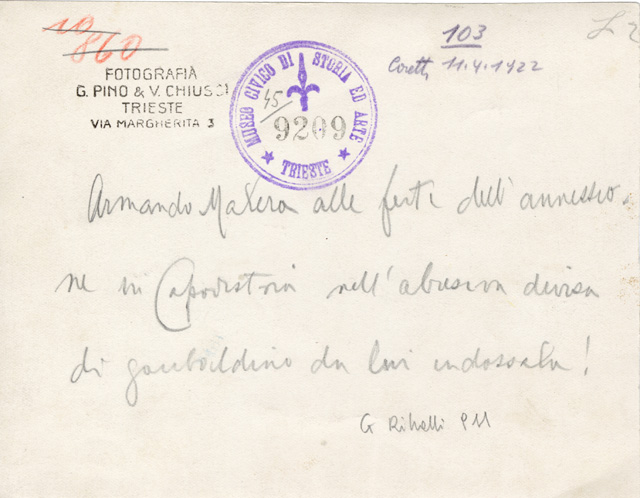 10
860
103
Coretti 11.4.1922
L 2
FOTOGRAFIA
G. PINO & V. CHIUSSI
TRIESTE
VIA MARGHERITA 3
MUSEO CIVICO DI STORIA ED ARTE
45/
9209
★ TRIESTE ★
Armando Matera alle feste dell'annessio-
ne in Capodistria nell'abusiva divisa
di garibaldino da lui indossata!
G Ribelli PM